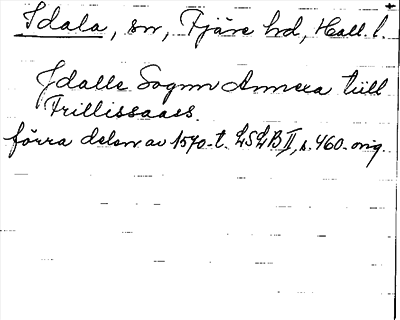 Idala, sn, Fjäre hd, Hall. l.
Jdalle Sognn Annexa tiill
Frillissaaes.
förra delen av 1570-t. LSLB II, s. 460. orig.